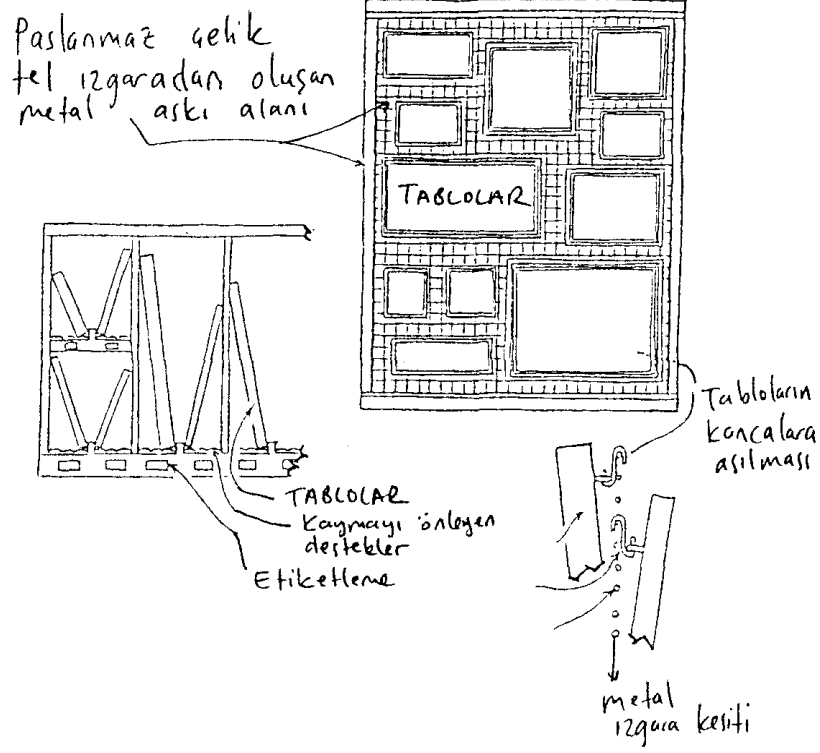 Paslanmaz çelik
tel ızgaradan oluşan
metal askı alanı
TABLOLAR
Tabloların
kancalara
asılması
TABLOLAR
Kaymayı önleyen
destekler
Etiketleme
metal
ızgara kesiti